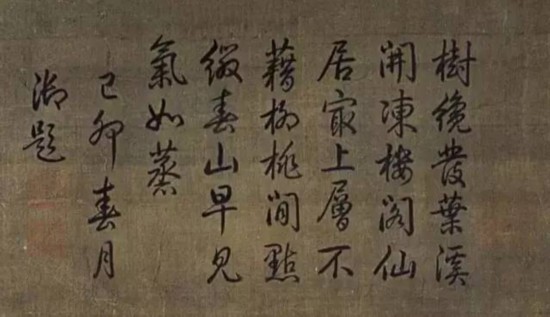 樹纔發葉溪
開凍樓閣仙
居㝡上層不
藉柳桃閒點
綴春山早見
氣如蒸
己卯春月
御題